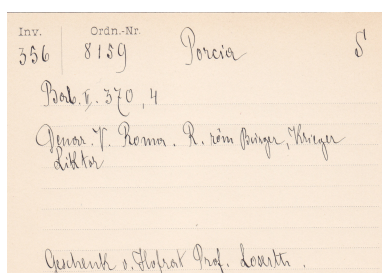 Inv. Ordn.-Nr.
356 8159 Porcia S
Bab. II. 370, 4
Denar. V. Roma. R. röm Bürger, Krieger
Liktor
Geschenk v. Hofrat Prof. Loserth.